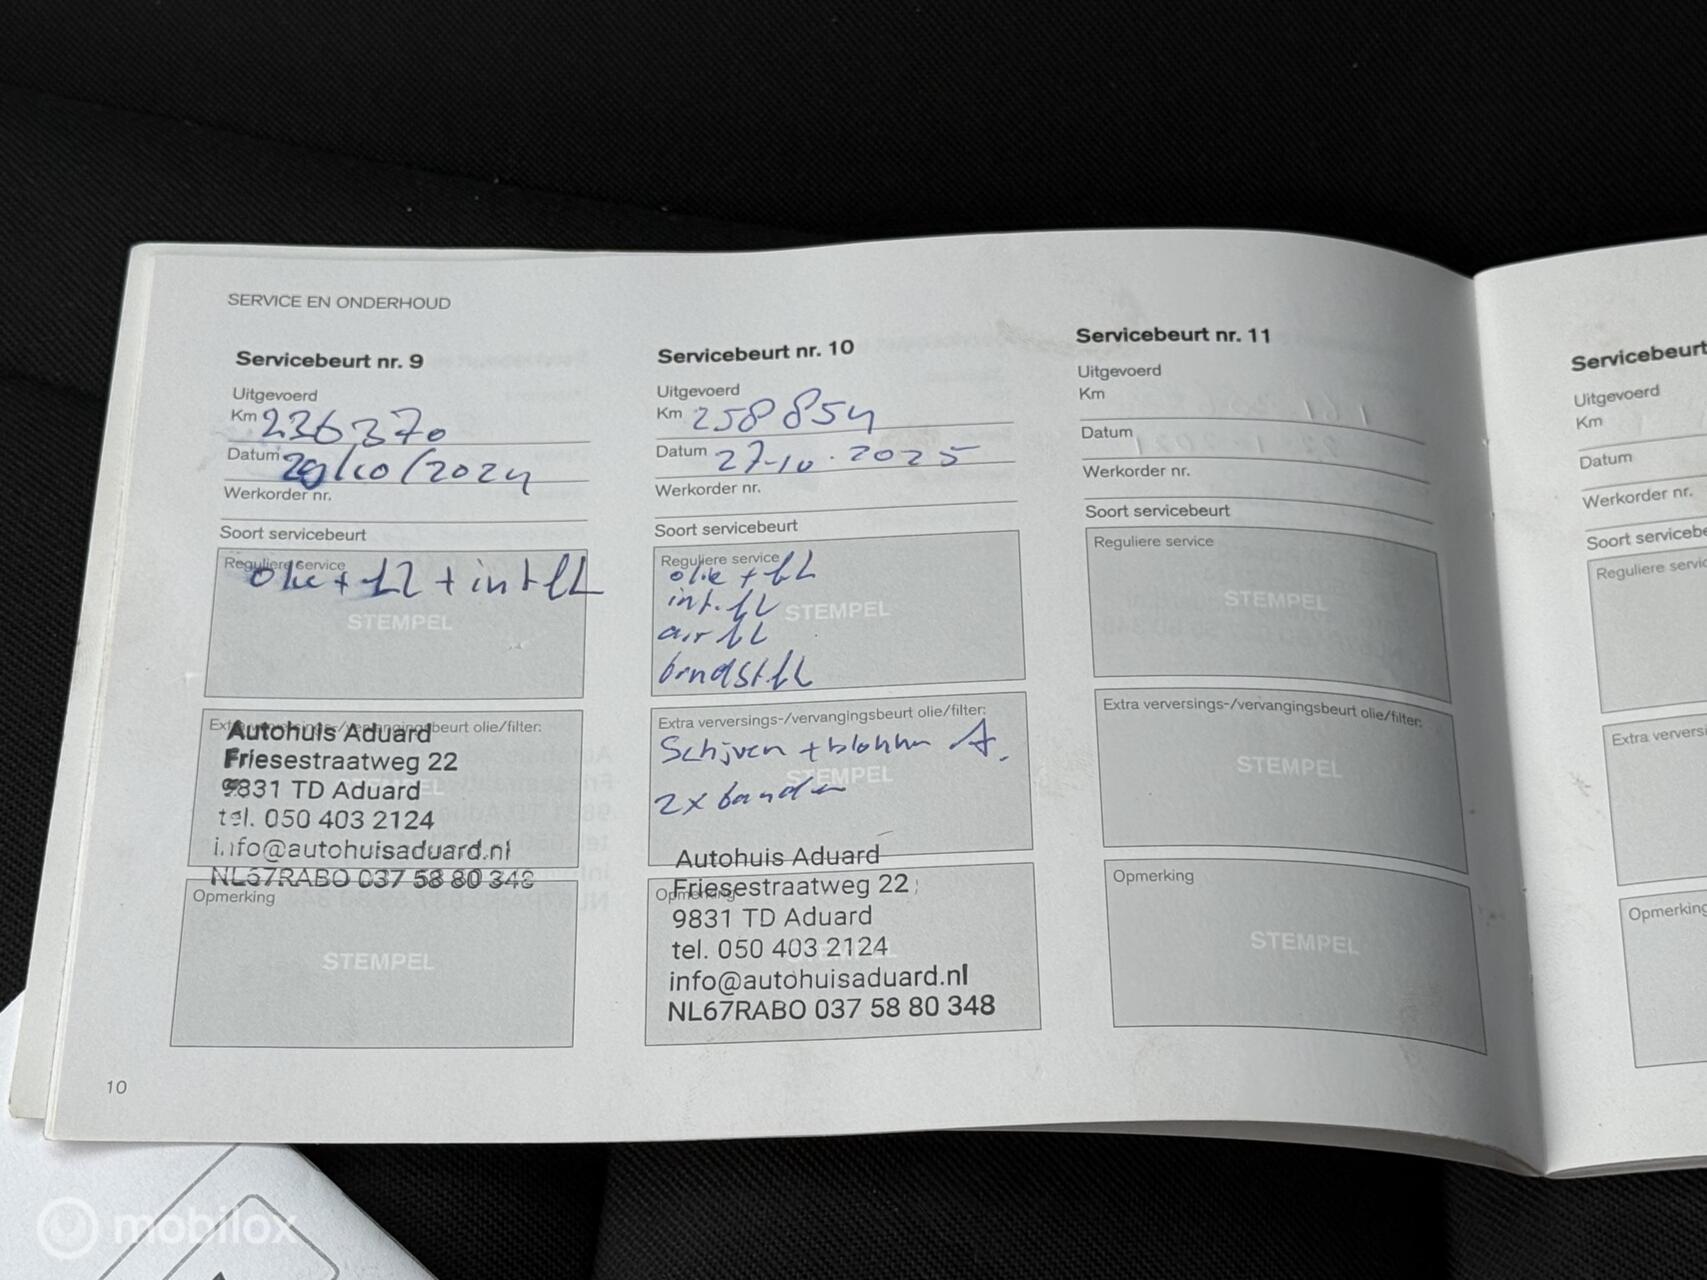 SERVICE EN ONDERHOUD
Servicebeurt nr. 9
Uitgevoerd
Km 236370
Datum 29/10/2024
Werkorder nr.
Soort servicebeurt
Reguliere service
olie + fL + int fL
STEMPEL
Extra verversings-/vervangingsbeurt olie/filter:
Autohuis Aduard
Friesestraatweg 22
9831 TD Aduard
tel. 050 403 2124
info@autohuisaduard.nl
NL67RABO 037 58 80 348
Opmerking
STEMPEL
10
Servicebeurt nr. 10
Uitgevoerd
Km 258854
Datum 27-10-2025
Werkorder nr.
Soort servicebeurt
Reguliere service
olie + fL
int. fL
STEMPEL
air fL
brndst.fL
Extra verversings-/vervangingsbeurt olie/filter:
Schijven + blokken A.
STEMPEL
2x banden
Autohuis Aduard
Opmerking
Friesestraatweg 22
9831 TD Aduard
tel. 050 403 2124
info@autohuisaduard.nl
NL67RABO 037 58 80 348
Servicebeurt nr. 11
Uitgevoerd
Km
Datum
Werkorder nr.
Soort servicebeurt
Reguliere service
STEMPEL
Extra verversings-/vervangingsbeurt olie/filter:
STEMPEL
Opmerking
STEMPEL
Servicebeurt
Uitgevoerd
Km
Datum
Werkorder nr.
Soort servicebe
Reguliere servic
Extra versersi
Opmerking
mobilox